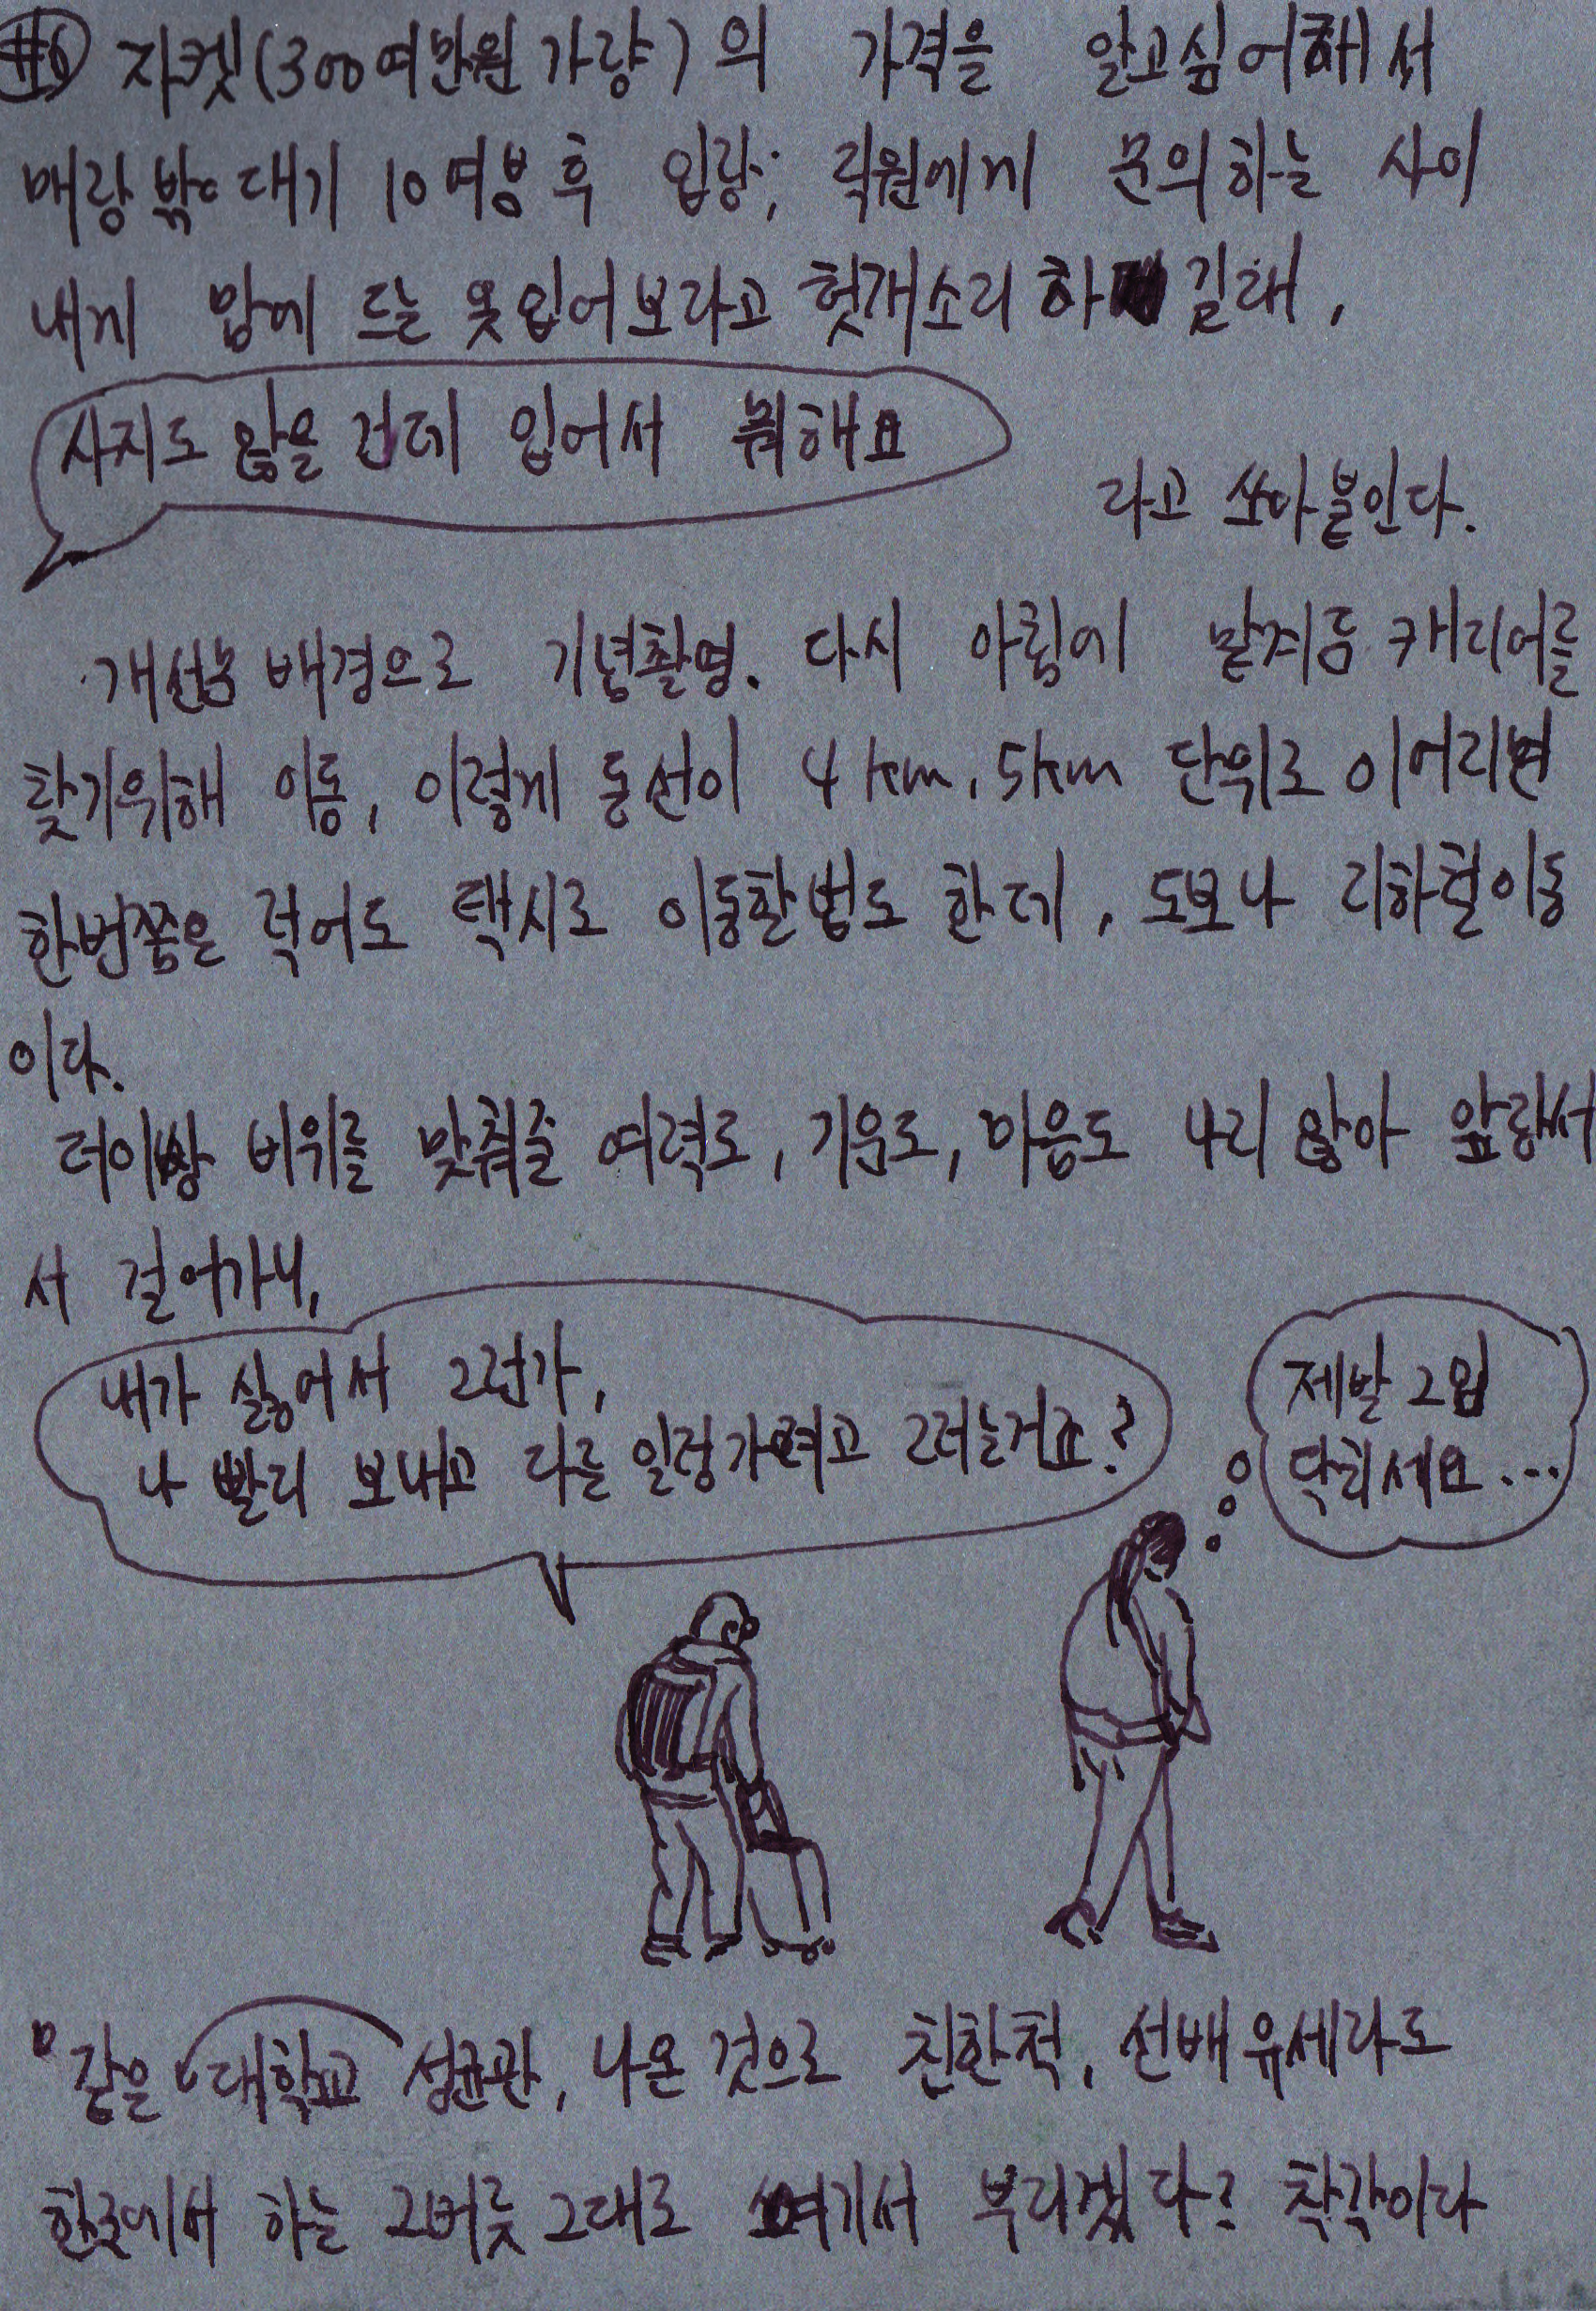 #6 자켓(300여만원 가량)의 가격을 알고싶어해서
매장 밖 대기 10여분 후 입장; 직원에게 문의하는 사이
내게 맘에 드는 옷 입어보라고 헛개소리 하길래,
사지도 않을 건데 입어서 뭐해요
라고 쏘아붙인다.
개선문 배경으로 기념촬영. 다시 아침에 맡겨둔 캐리어를
찾기위해 이동, 이렇게 동선이 4km, 5km 단위로 이어지면
한번쯤은 적어도 택시로 이동할법도 한데, 도보나 지하철이동
이다.
더이상 비위를 맞춰줄 여력도, 기운도, 마음도 나지 않아 앞장서
서 걸어가니,
내가 싫어서 그런가,
나 빨리 보내고 다른 일정가려고 그러는거죠?
제발 그입
닥치세요...
같은 대학교 성균관, 나온 것으로 친한척, 선배유세라도
한국에서 하는 그버릇 그대로 여기서 부리겠다? 착각이다